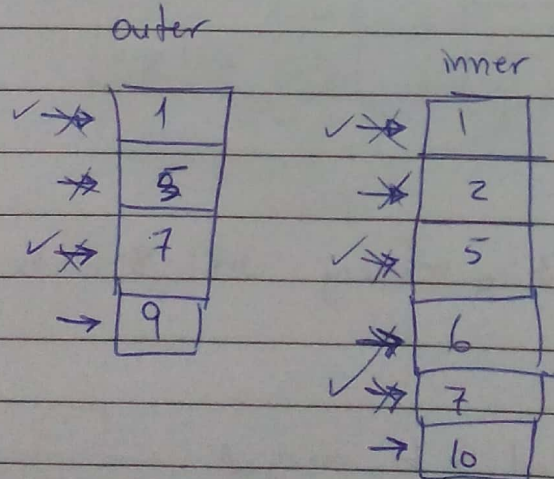 outer
1
5
7
9
inner
1
2
5
6
7
10